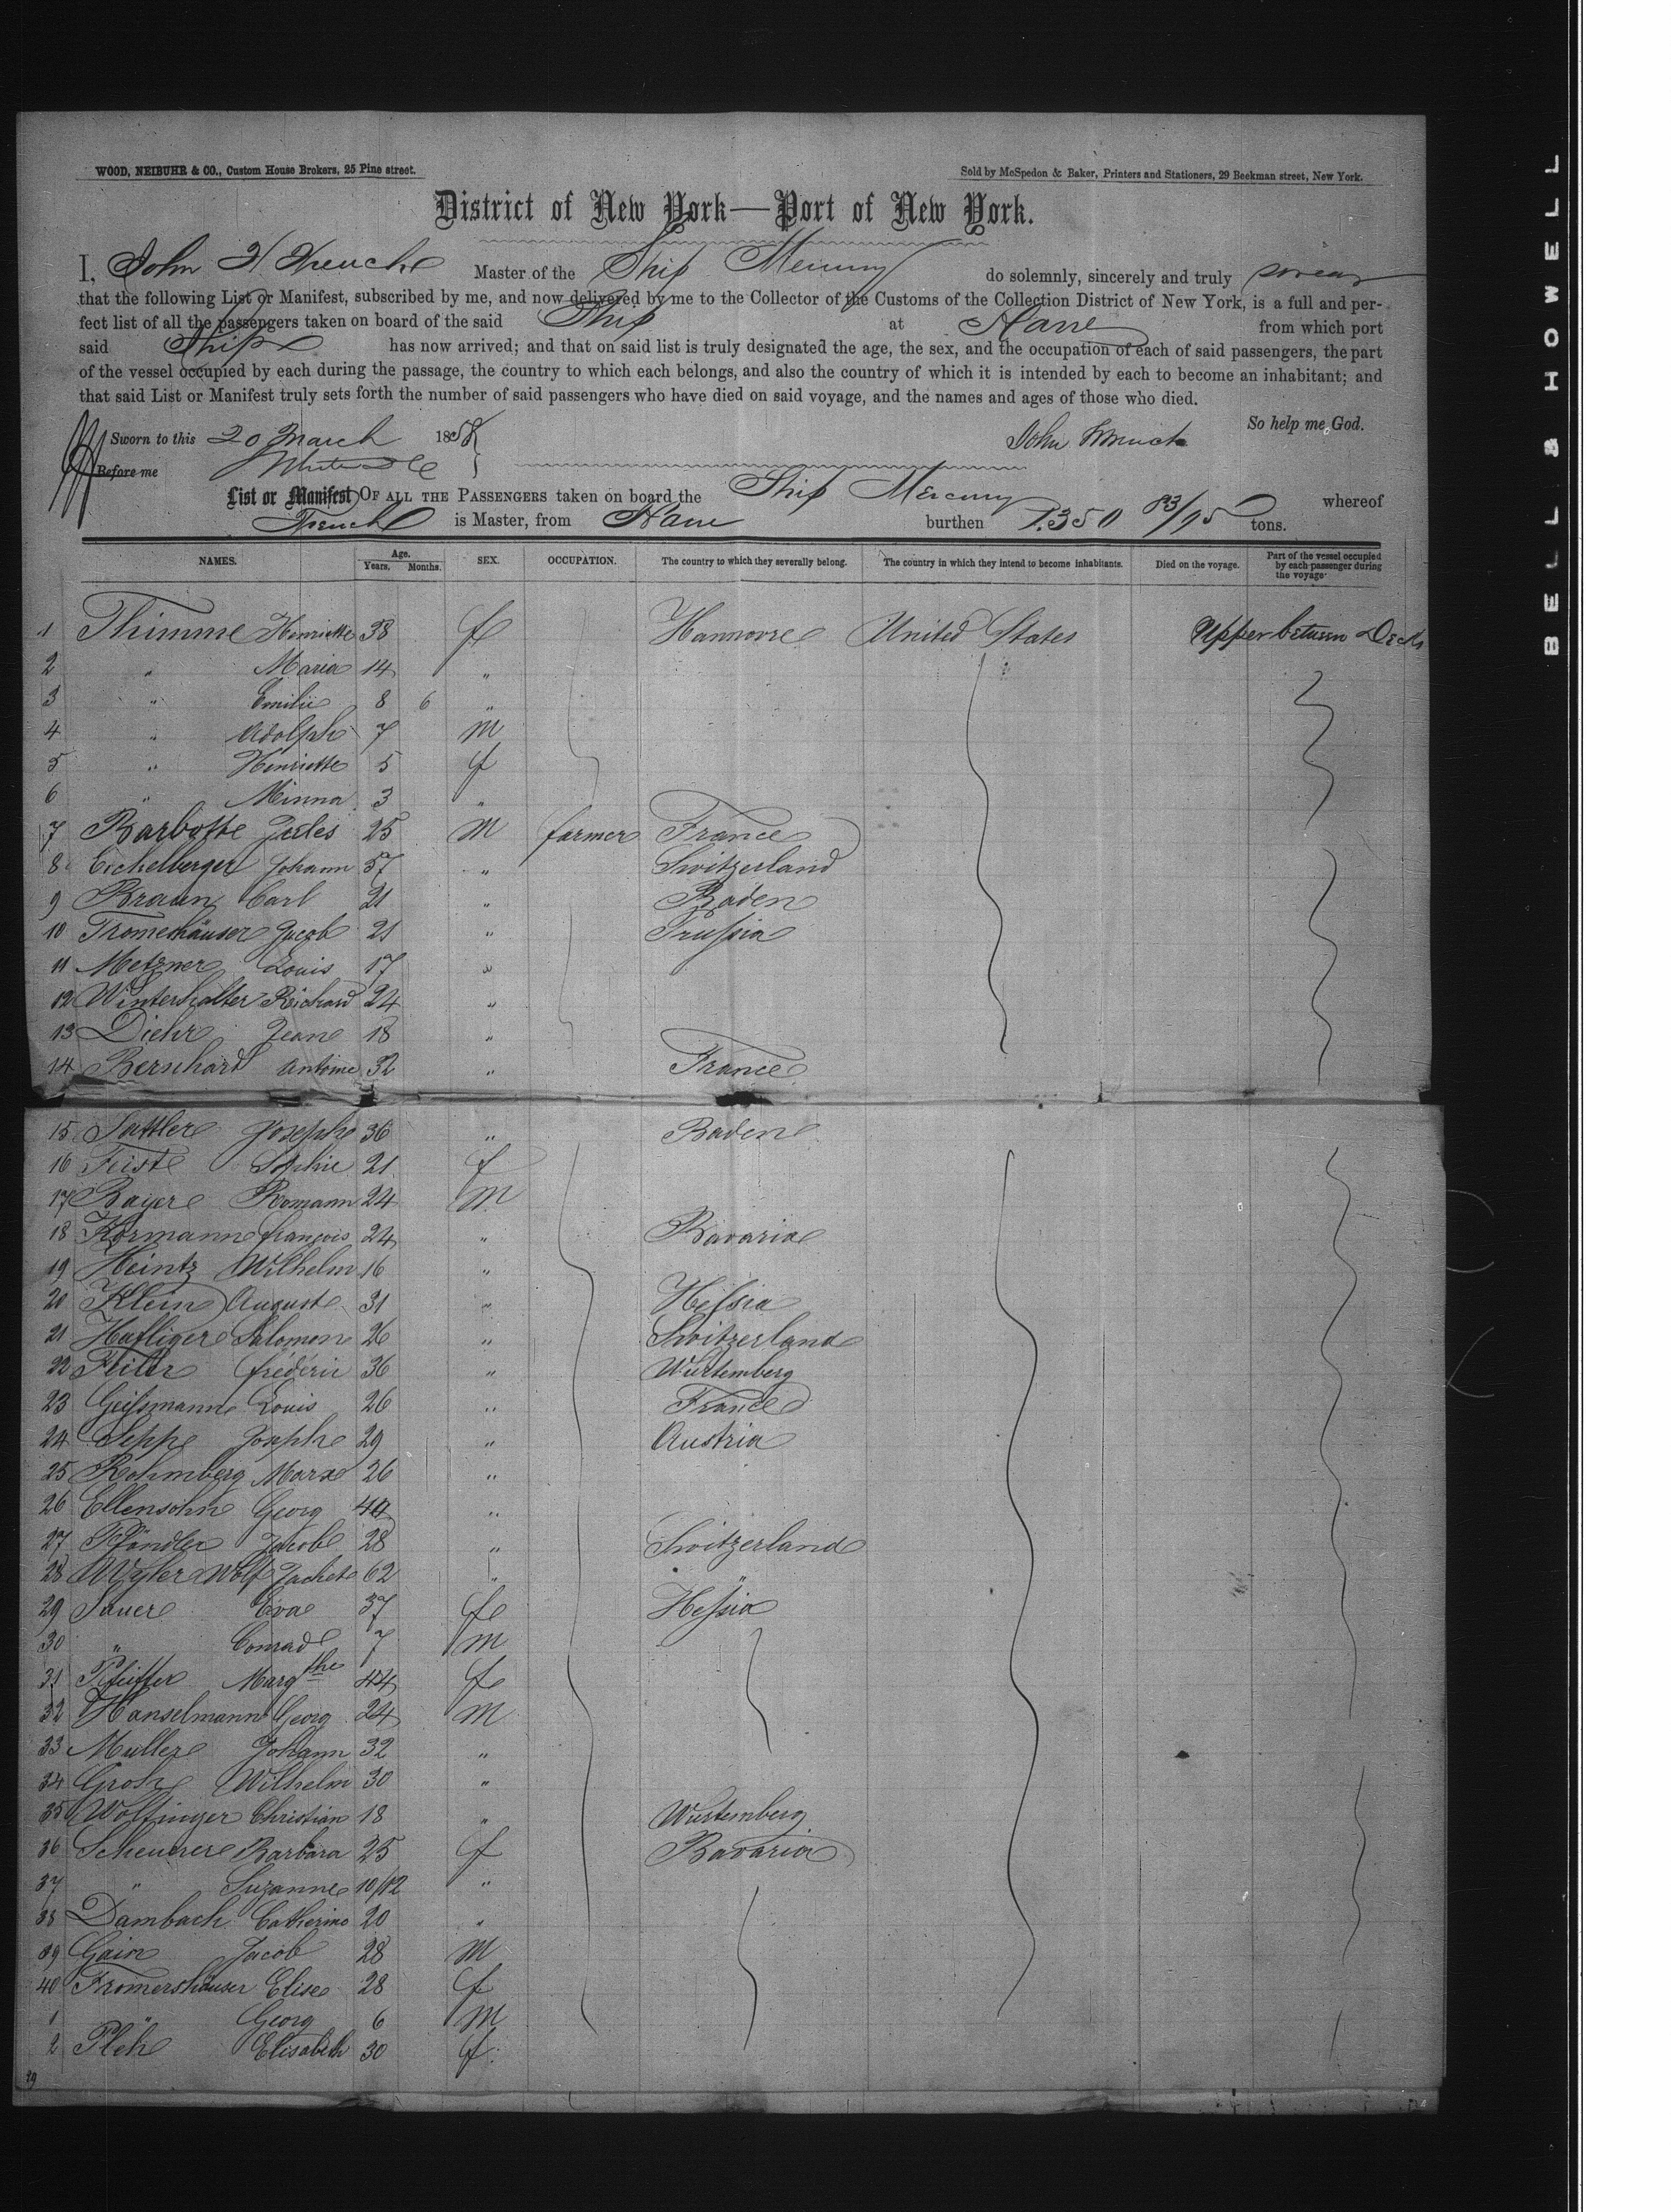 WOOD, NEIBUHR & CO., Custom House Brokers, 25 Pine street.
Sold by McSpedon & Baker, Printers and Stationers, 29 Beekman street, New York.
District of New York—Port of New York.
I, John H Master of the Ship Mercury do solemnly, sincerely and truly swear
that the following List or Manifest, subscribed by me, and now delivered by me to the Collector of the Customs of the Collection District of New York, is a full and per-
fect list of all the passengers taken on board of the said Ship at Havre from which port
said Ship has now arrived; and that on said list is truly designated the age, the sex, and the occupation of each of said passengers, the part
of the vessel occupied by each during the passage, the country to which each belongs, and also the country of which it is intended by each to become an inhabitant; and
that said List or Manifest truly sets forth the number of said passengers who have died on said voyage, and the names and ages of those who died.
So help me God.
Sworn to this 20 March 1858 John
Before me
List or Manifest OF ALL THE PASSENGERS taken on board the Ship Mercury whereof
French is Master, from Havre burthen 1.350 83/95 tons.
NAMES. Age. Years. Months. SEX. OCCUPATION. The country to which they severally belong. The country in which they intend to become inhabitants. Died on the voyage. Part of the vessel occupied by each passenger during the voyage
1 Thimme Henriette 38 f Hannovre United States Upper between Decks
2 " Maria 14 "
3 " Emilie 8 6 "
4 " Adolph 7 M
5 " Henriette 5 f
6 " Minna 3 "
7 Barbotte Jules 25 M farmer France
8 Eichelberger Johann 57 " Switzerland
9 Braun Carl 21 " Baden
10 Jacob 21 " Prussia
11 Metzner Louis 17 "
12 Winterhalter Richard 24 "
13 Diehr Jean 18 "
14 Bernhard Antoine 32 " France
15 Sattler Joseph 36 " Baden
16 Sophie 21 f
17 Bayer Romann 24 M
18 Kormann françois 24 " Bavaria
19 Heintz Wilhelm 16 "
20 Klein August 31 " Hessia
21 Hafliger Salomon 26 " Switzerland
22 frédéric 36 " Wurtemberg
23 Geissmann Louis 26 " France
24 Seppe Joseph 29 " Austria
25 Rohmberg Marx 26 "
26 Ellensohn Georg 44 "
27 Pfändler Jacob 28 " Switzerland
28 Wyler Wolf 62 " "
29 Sauer Eva 37 f Hessia
30 " Conrad 7 M
31 Pfeiffer Margthe 44 f
32 Hanselmann Georg 24 M
33 Muller Johann 32 "
34 Wilhelm 30 "
35 Wolfinger Christian 18 " Wurtemberg
36 Scheurer Barbara 25 f Bavaria
37 " Suzanne 10/12 "
38 Dambach Catherine 20 "
39 Jacob 28 M
40 Fromershäuser Elise 28 f
1 " Georg 6 M
2 Elisabeth 30 f
BELL & HOWELL